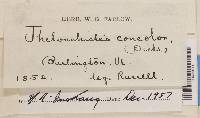 HERB. W. G. FARLOW.
Thelocarpon concolor,
(Dicks.)
Burlington, Vt.
1852. leg. Russell.
Dec. 1957